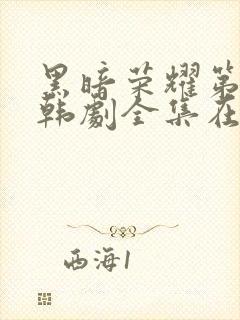 黑暗荣耀第
韩劇全集在
西海1